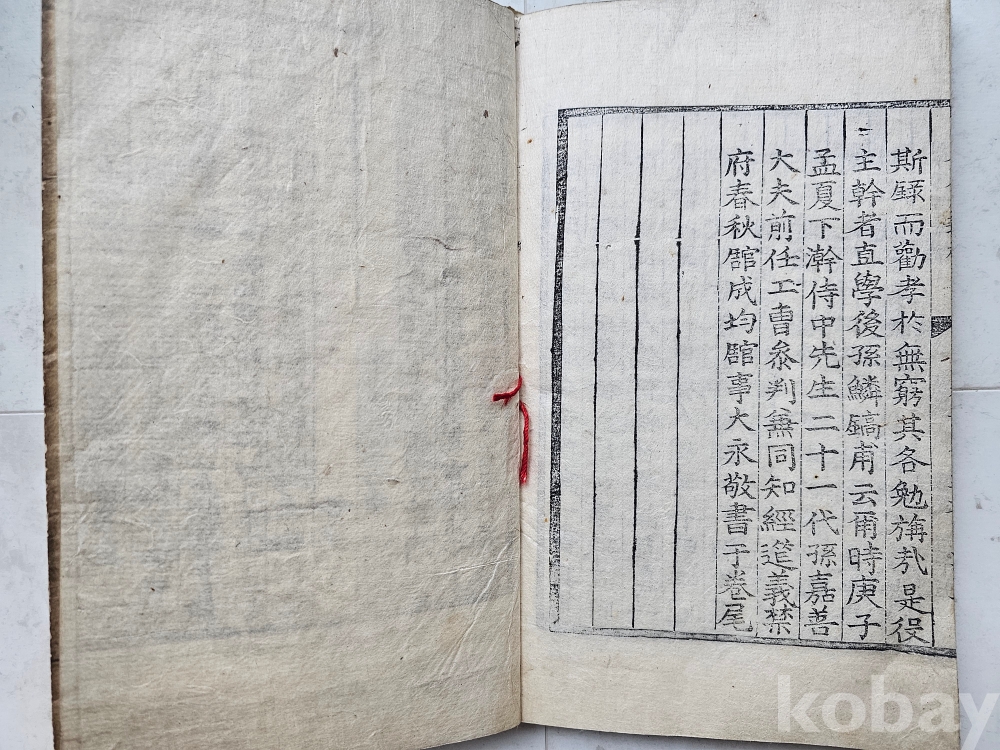 斯錄而勸孝於無窮其各勉旃㢤是役
主幹者直學後孫鱗鎬甫云爾時庚子
孟夏下澣侍中先生二十一代孫嘉善
大夫前任工曹叅判兼同知經筵義禁
府春秋館成均館事大永敬書于卷尾
kobay